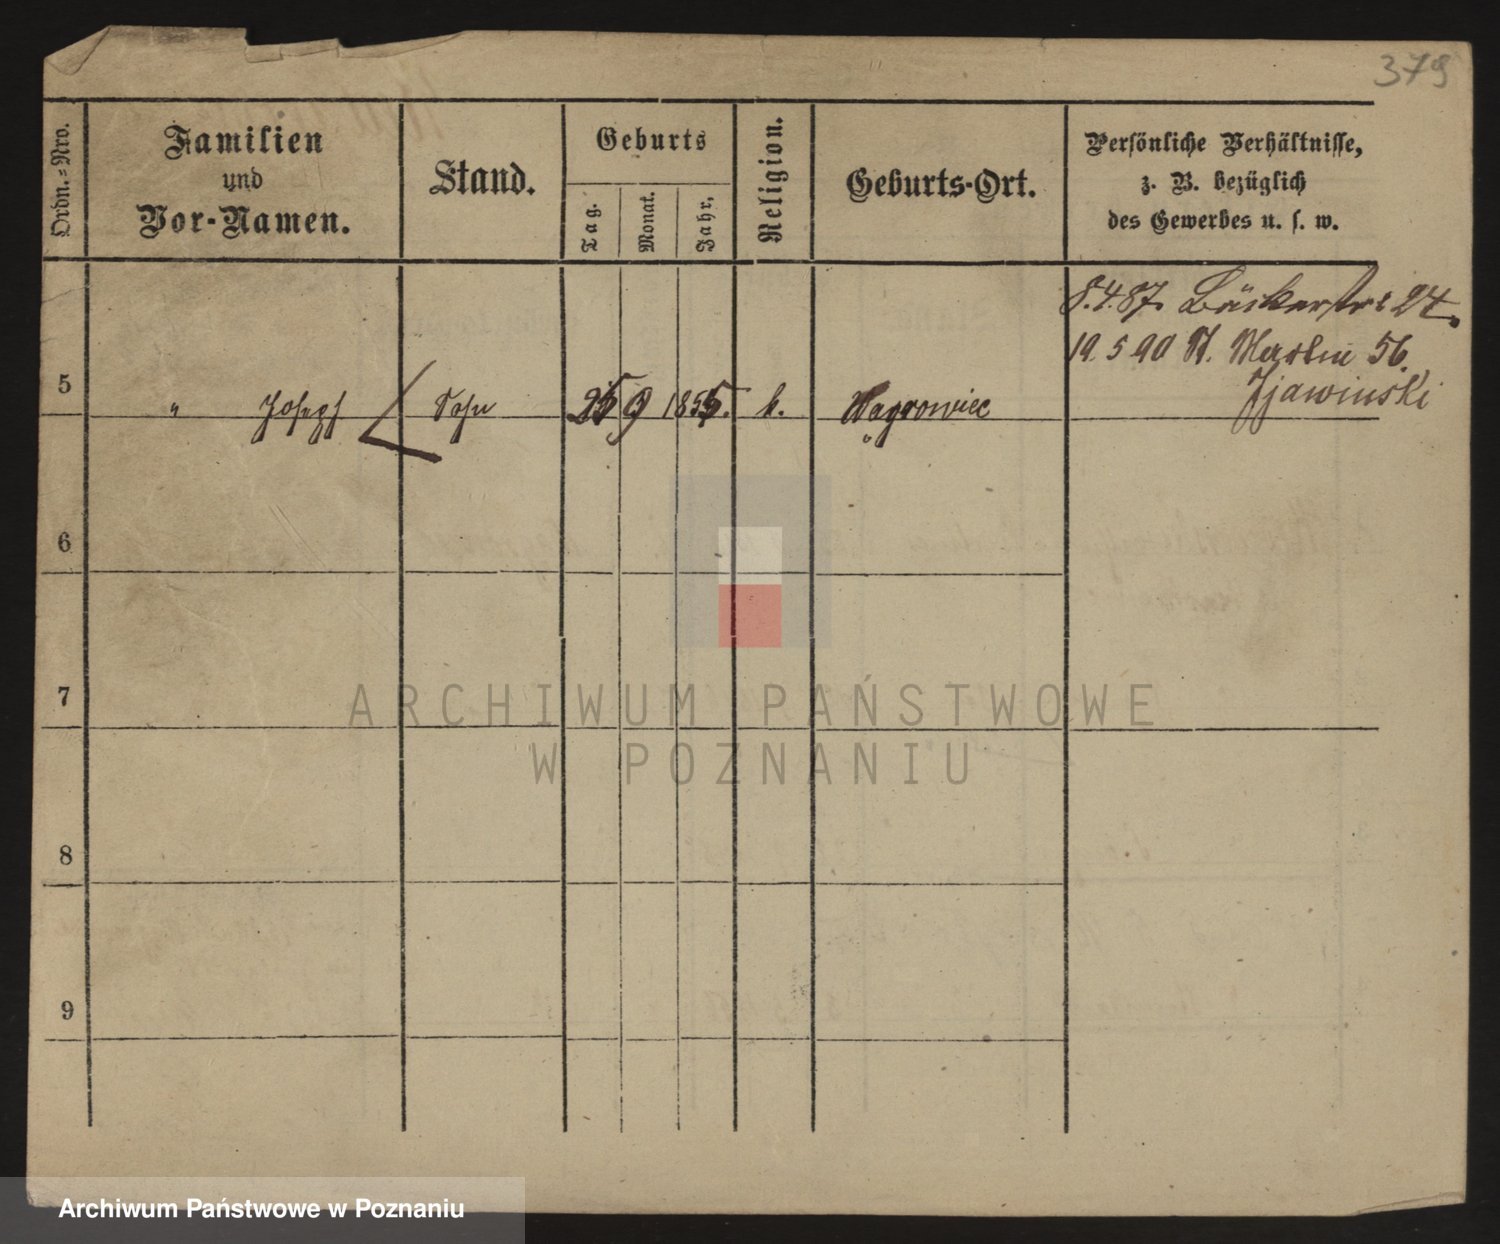 379
Ordn.=Nro.
Familien
und
Vor-Namen.
Stand.
Geburts
Tag.
Monat.
Jahr.
Religion.
Geburts-Ort.
Persönliche Verhältnisse,
z. B. bezüglich
des Gewerbes u. s. w.
8.4.87. Bäckerstr 24.
19. 5 90 St. Martin 56.
Zjawinski
5 " Joseph Sohn 25 9 1855. k. Wagrowiec
6
7
8
9
ARCHIWUM PAŃSTWOWE
W POZNANIU
Archiwum Państwowe w Poznaniu